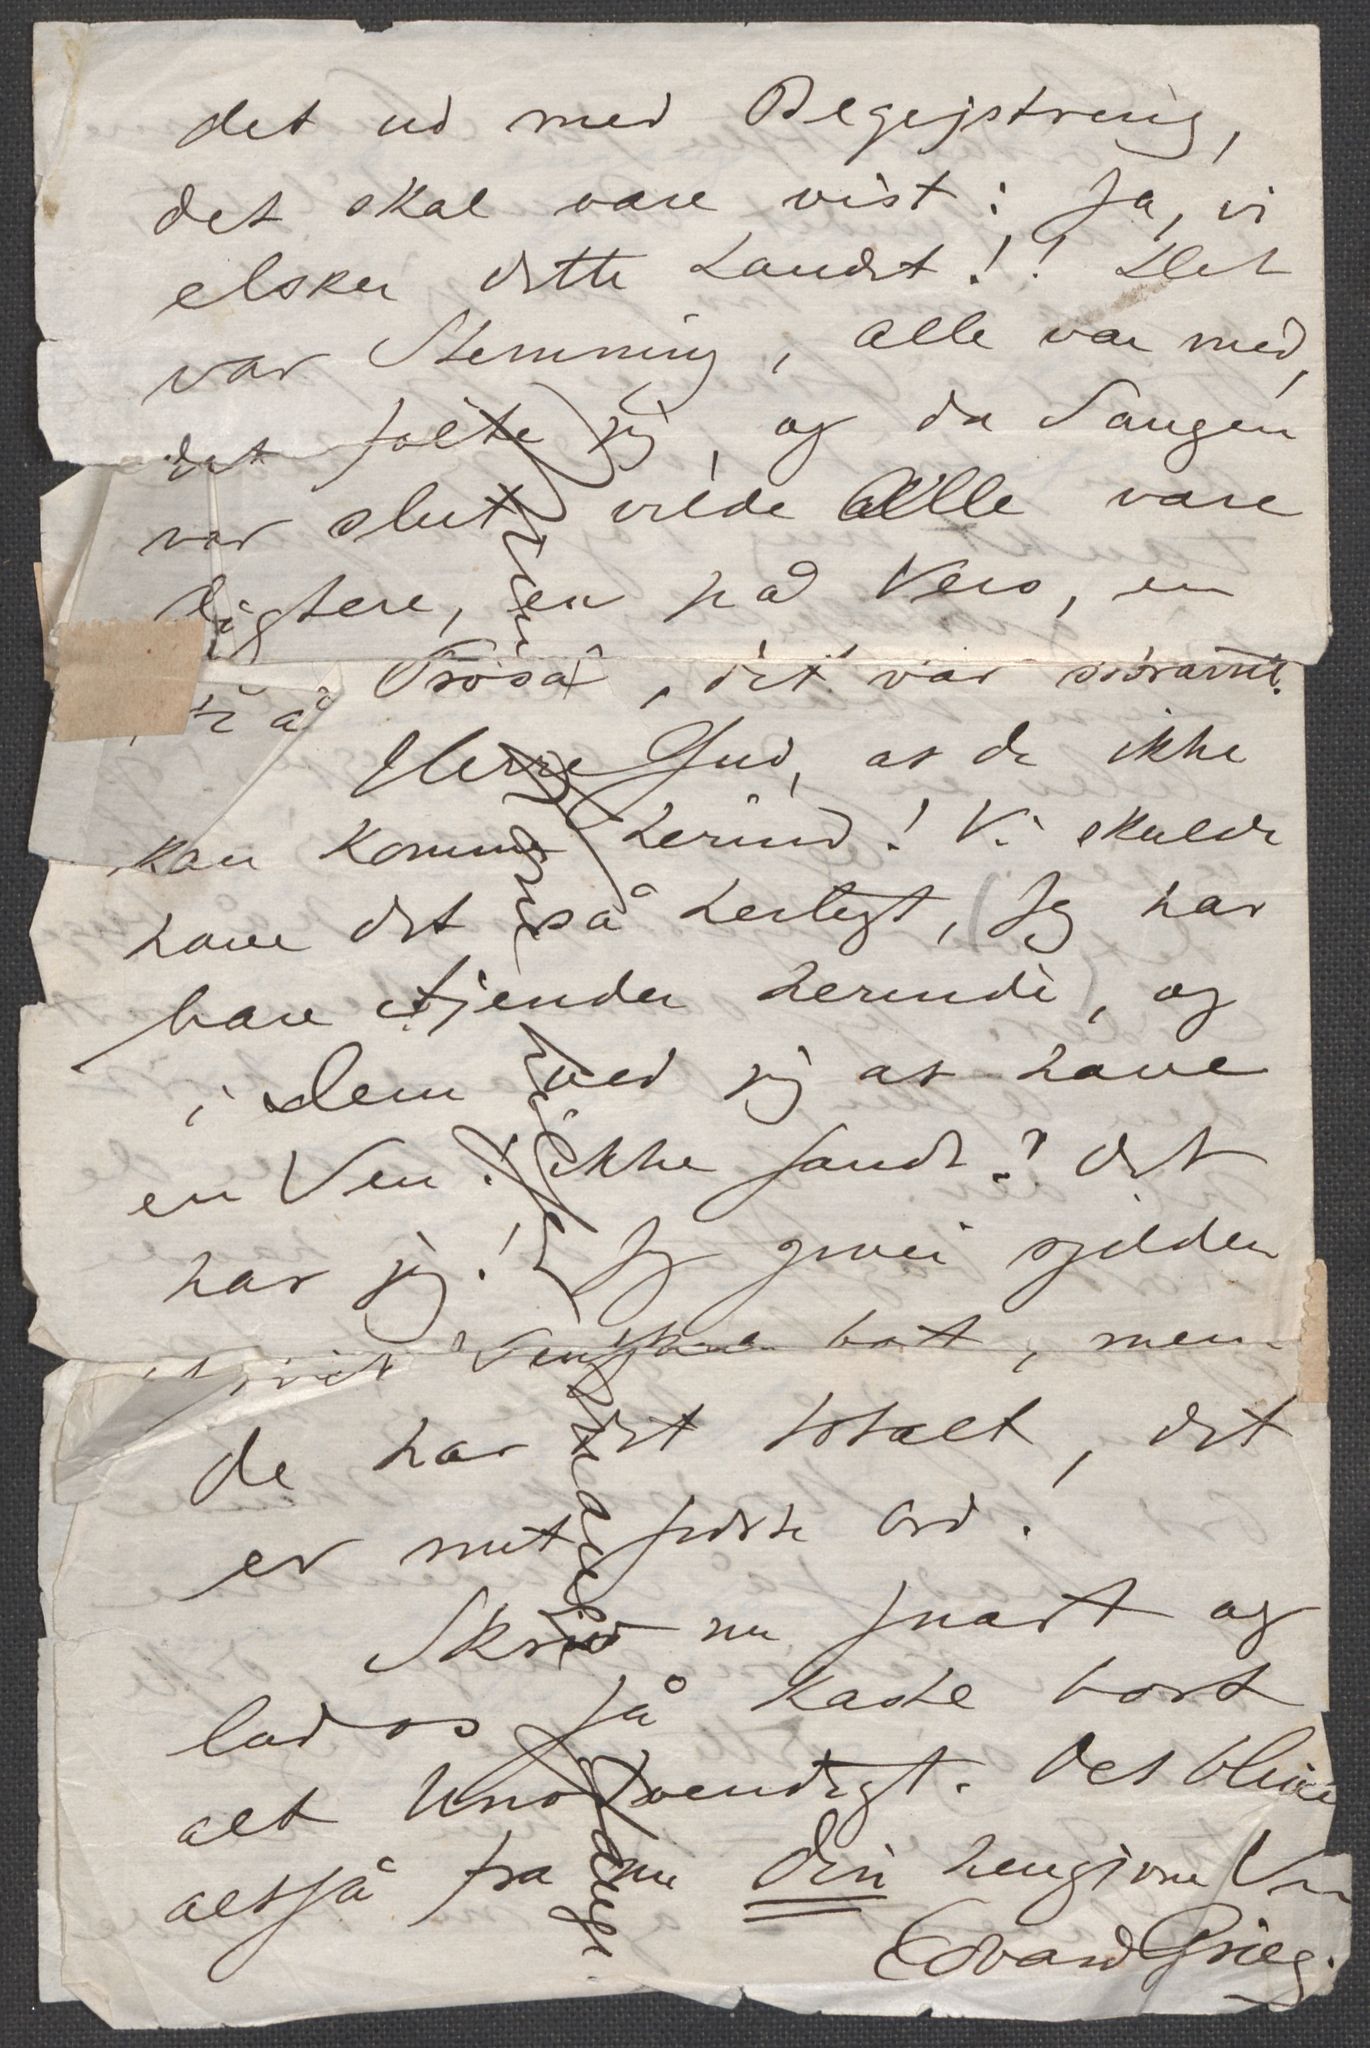 det ud med Begejstring,
det skal være vist: Ja, vi
elsker dette Landet!! Det
var Stemning, alle var med,
det følte jeg, og da Sangen
var slut vilde Alle være
Digtere, en på Vers, en
på Prosa, det var
Herre Gud, at De ikke
kan komme herind! Vi skulde
have det så herligt, Jeg har
bare Fjender herinde, og
i Dem ved jeg at have
en Ven! ikke sandt? Det
har jeg! Jeg giver sjelden
mit Venskab bort, men
De har det totalt, det
er mit sidste Ord.
Skriv nu snart og
lad os så kaste bort
alt Unødvendigt. Det bliver
altså fra nu Din hengivne Ven
Edvard Grieg.